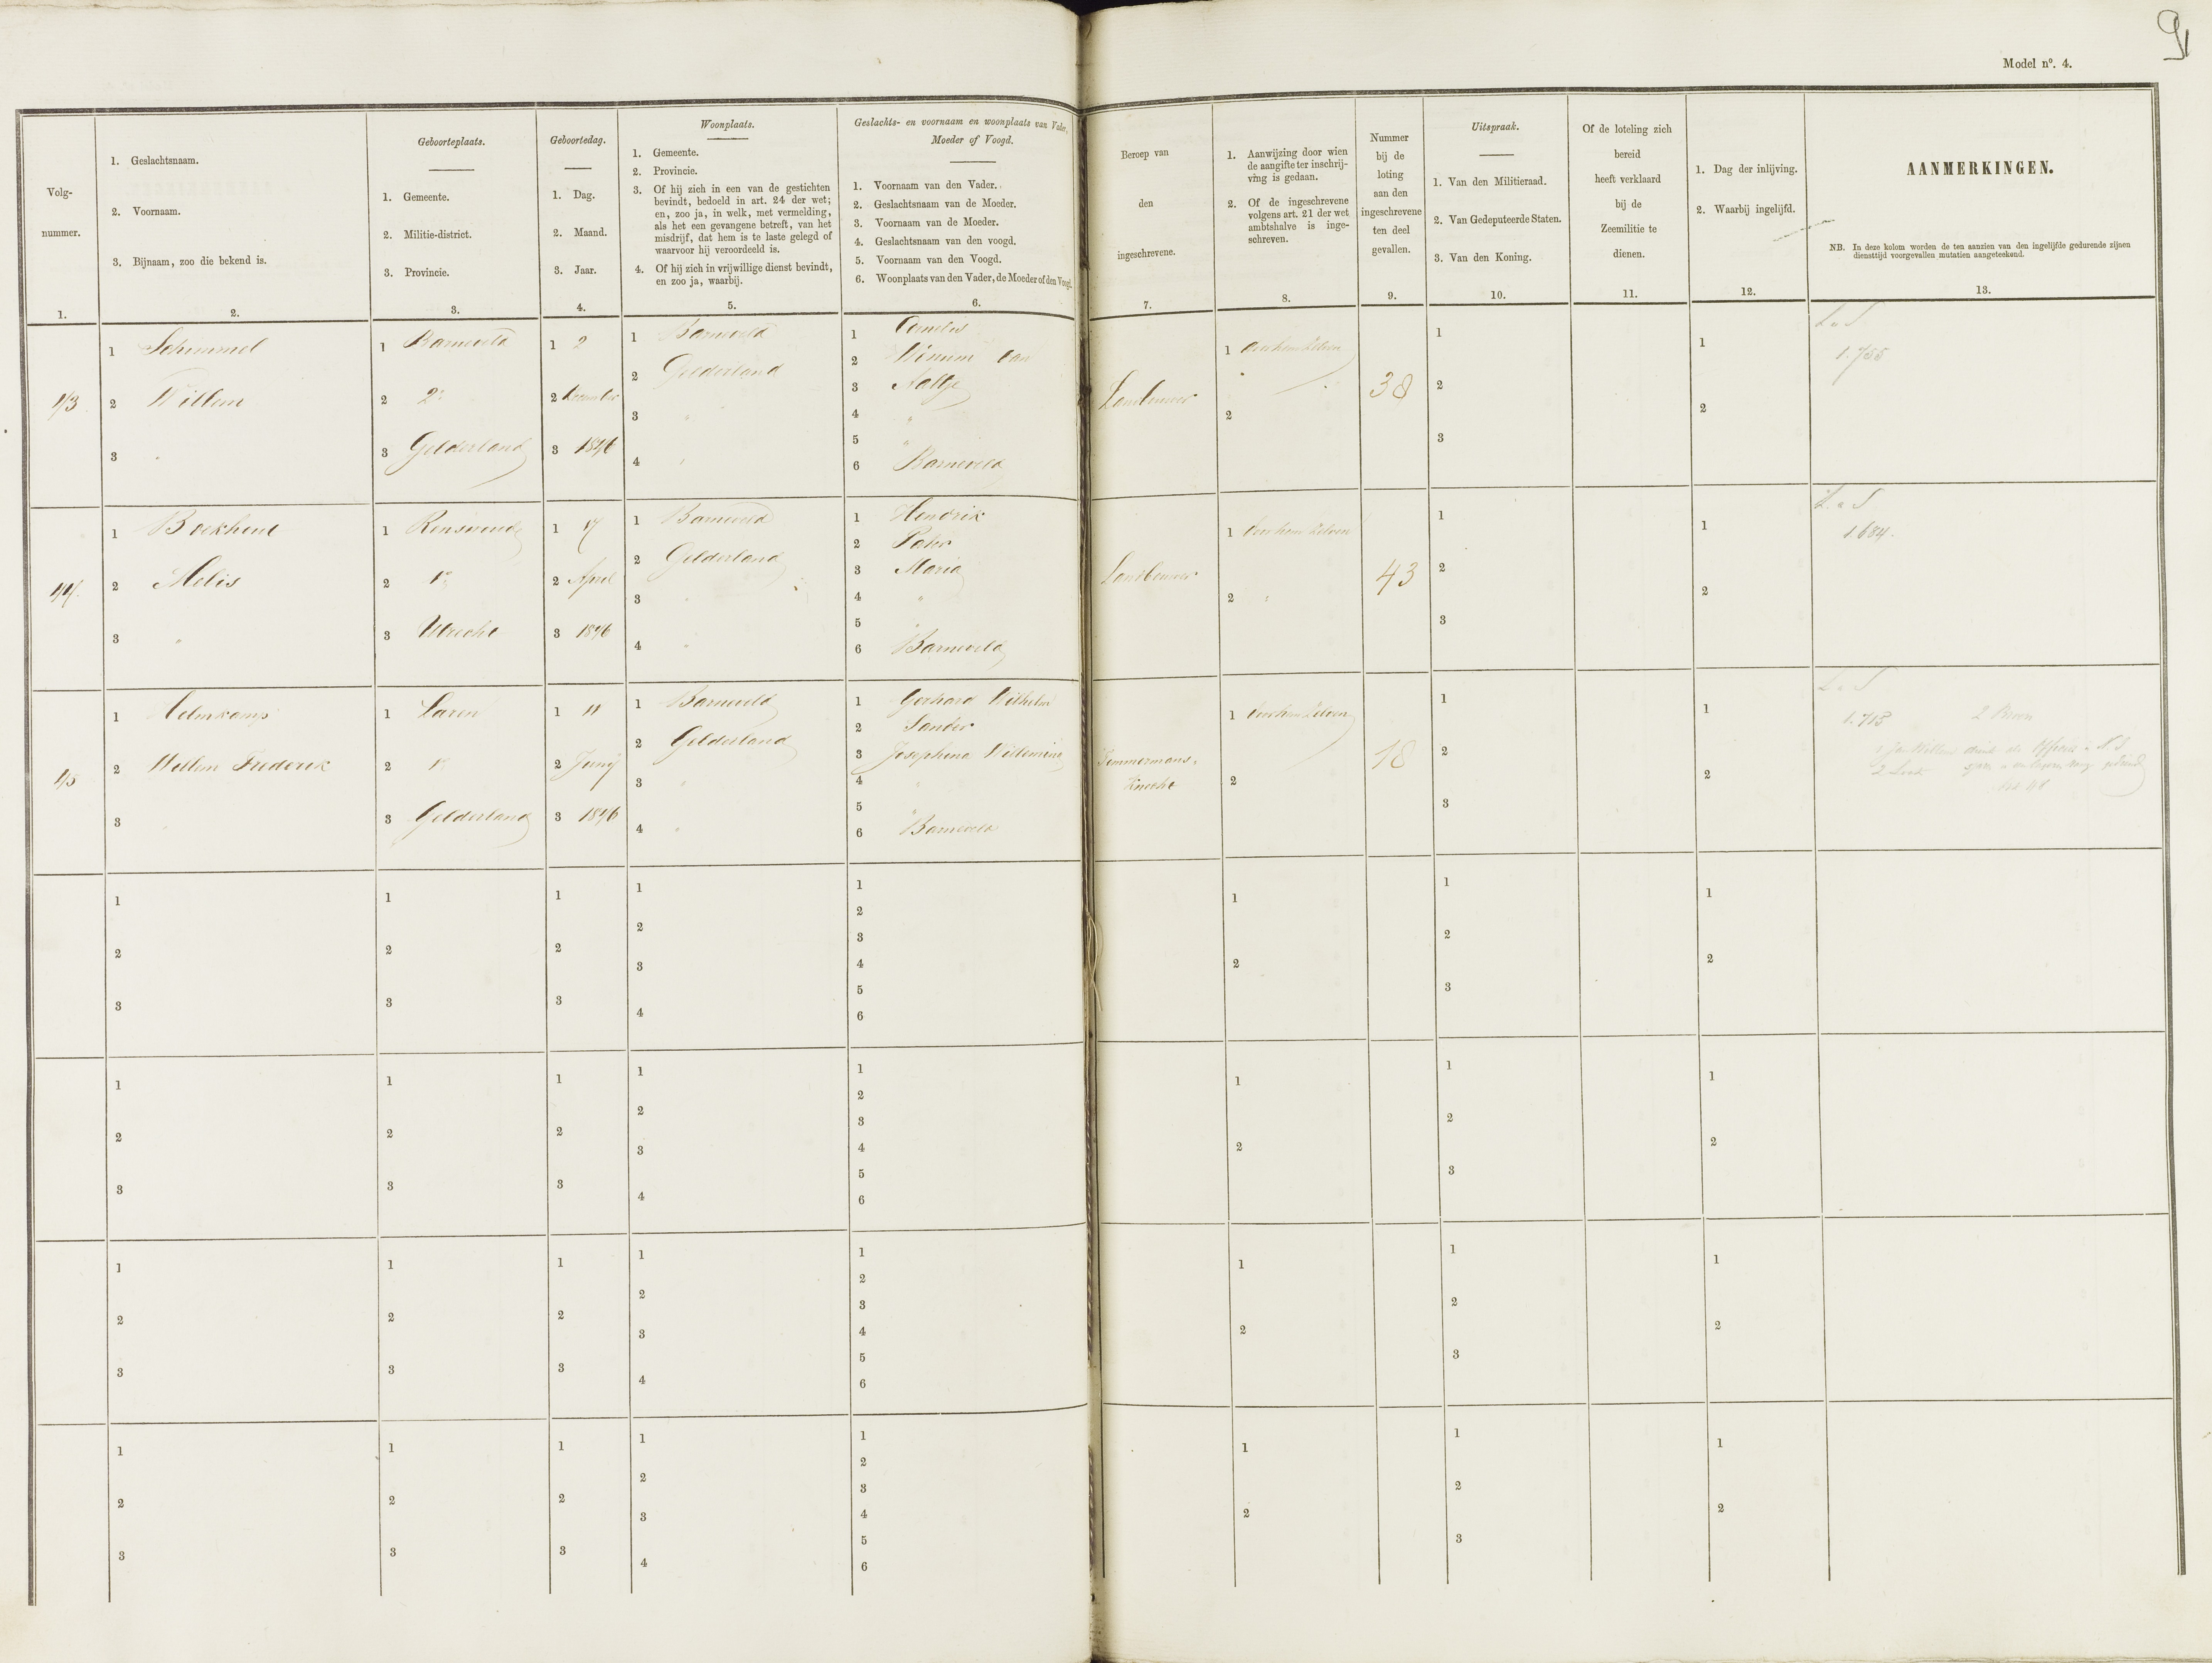 91
Model nº. 4.
Volg-
nummer.
1.
1. Geslachtsnaam.
2. Voornaam.
3. Bijnaam, zoo die bekend is.
2.
Geboorteplaats.
1. Gemeente.
2. Militie-district.
3. Provincie.
3.
Geboortedag.
1. Dag.
2. Maand.
3. Jaar.
4.
Woonplaats.
1. Gemeente.
2. Provincie.
3. Of hij zich in een van de gestichten
bevindt, bedoeld in art. 24 der wet;
en, zoo ja, in welk, met vermelding,
als het een gevangene betreft, van het
misdrijf, dat hem is te laste gelegd of
waarvoor hij veroordeeld is.
4. Of hij zich in vrijwillige dienst bevindt,
en zoo ja, waarbij.
5.
Geslachts- en voornaam en woonplaats van Vader,
Moeder of Voogd.
1. Voornaam van den Vader.
2. Geslachtsnaam van de Moeder.
3. Voornaam van de Moeder.
4. Geslachtsnaam van den voogd.
5. Voornaam van den Voogd.
6. Woonplaats van den Vader, de Moeder of den Voogd.
6.
Beroep van
den
ingeschrevene.
7.
1. Aanwijzing door wien
de aangifte ter inschrij-
ving is gedaan.
2. Of de ingeschrevene
volgens art. 21 der wet
ambtshalve is inge-
schreven.
8.
Nummer
bij de
loting
aan den
ingeschrevene
ten deel
gevallen.
9.
Uitspraak.
1. Van den Militieraad.
2. Van Gedeputeerde Staten.
3. Van den Koning.
10.
Of de loteling zich
bereid
heeft verklaard
bij de
Zeemilitie te
dienen.
11.
1. Dag der inlijving.
2. Waarbij ingelijfd.
12.
AANMERKINGEN.
NB. In deze kolom worden de ten aanzien van den ingelijfde gedurende zijnen
diensttijd voorgevallen mutatien aangeteekend.
13.
43
1 Schimmel
2 Willem
3 "
1 Barneveld
2 2e
3 Gelderland
1 2
2 December
3 1846
1 Barneveld
2 Gelderland
3 "
4 "
1 Cornelis
2 van
3 Aaltje
4 "
5 "
6 Barneveld
Landbouwer
1 door hem zelven
2
38
1
2
3
1
2
1.755
44
1 Boekhout
2 Melis
3 "
1 Renswoude
2 1e
3 Utrecht
1 17
2 April
3 1846
1 Barneveld
2 Gelderland
3 "
4 "
1 Hendrik
2 Pater
3 Maria
4 "
5 "
6 Barneveld
Landbouwer
1 door hem zelven
2 "
43
1
2
3
1
2
1.684.
45
1 Helmkamp
2 Willem Frederik
3
1 Laren
2 1e
3 Gelderland
1 11
2 Junij
3 1846
1 Barneveld
2 Gelderland
3 "
4 "
1 Gerhard Wilhelm
2 Sander
3 Josephina Willemina
4 "
5 "
6 Barneveld
Timmermans-
knecht
1 door hem zelven
2
18
1
2
3
1
2
1.713
2 Broers